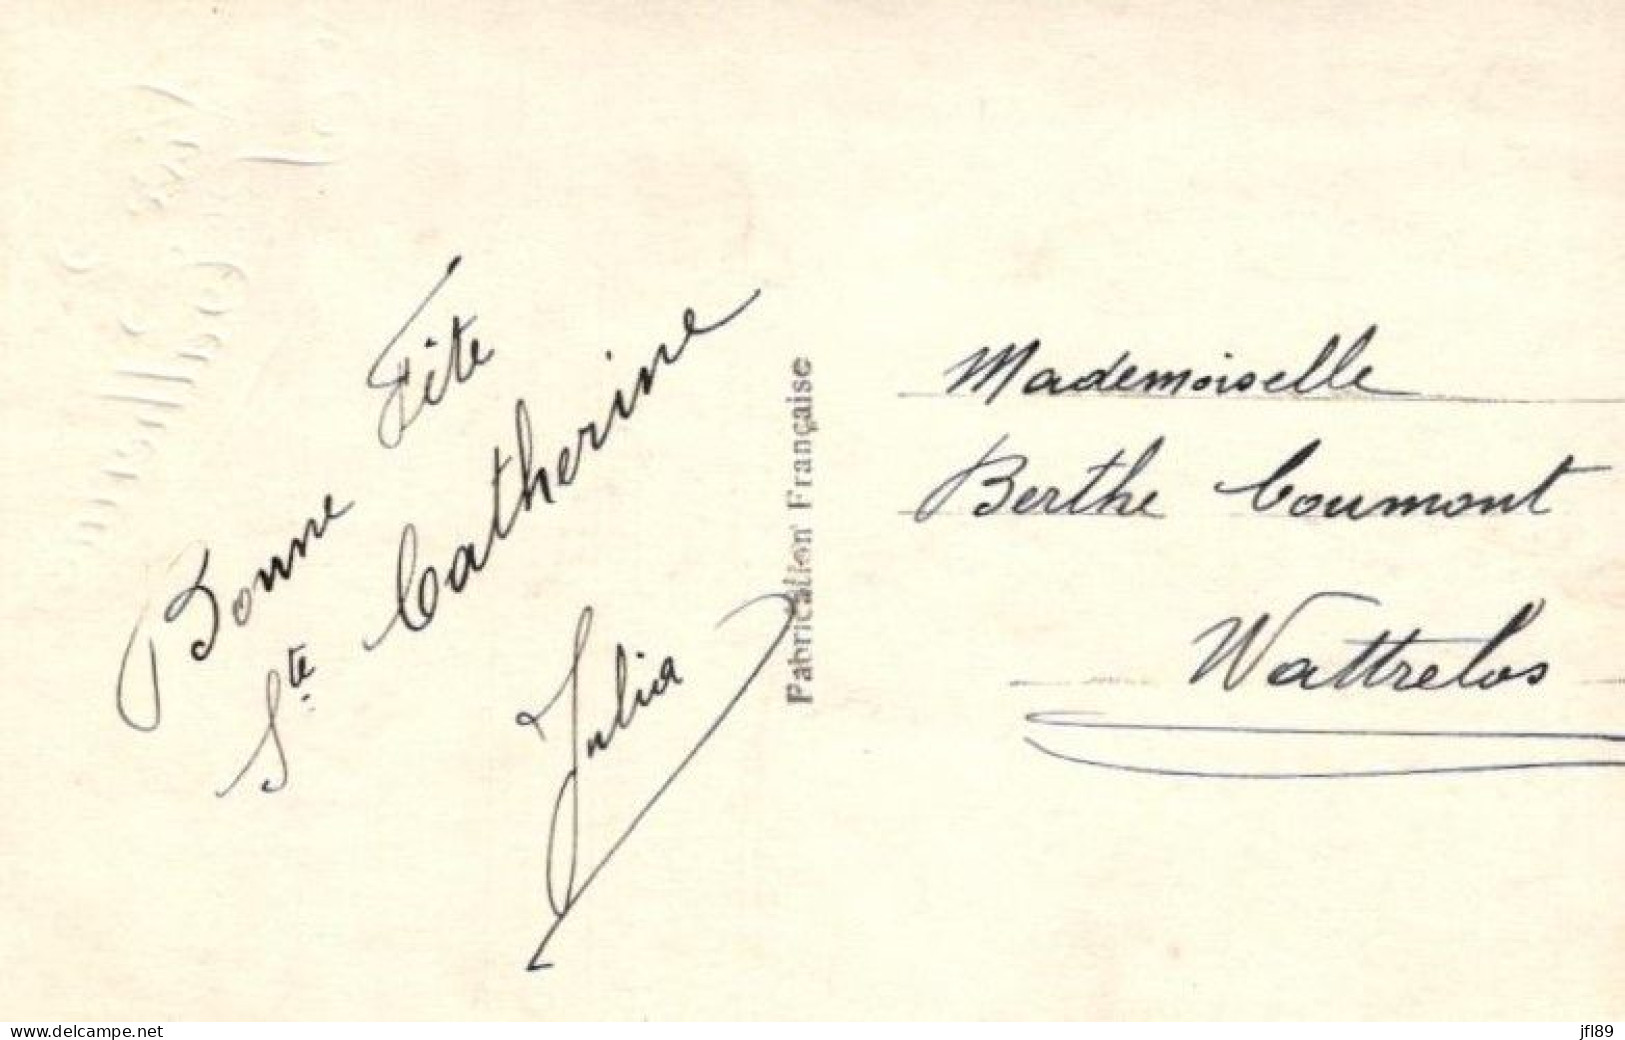 Bonne Fête
Ste Catherine
Julia
Fabrication Française
Mademoiselle
Berthe Coumont
Wattrelos
www.delcampe.net
jfl89